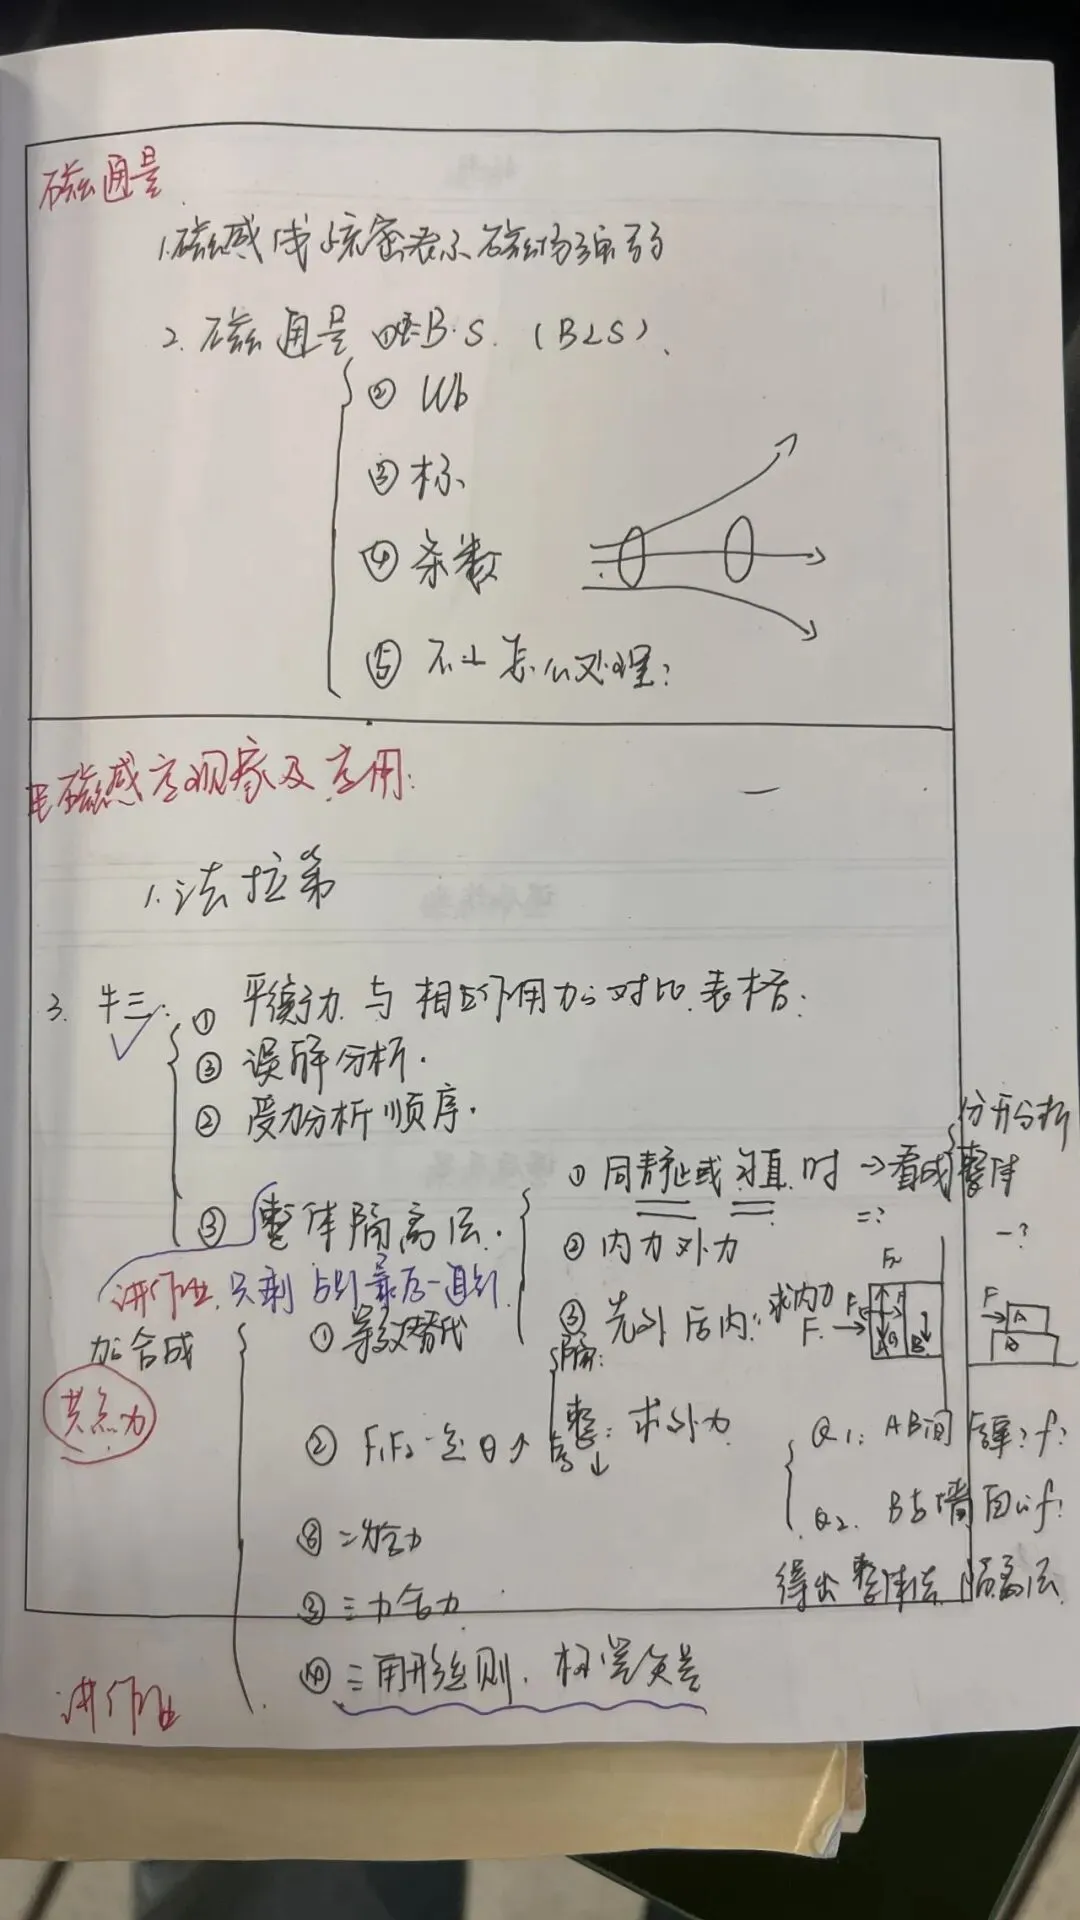 磁通量
1.磁感线疏密表示磁场强弱
2.磁通量 ①Φ=B·S.(B⊥S).
② Wb
③ 标
④ 条数
⑤ 不⊥怎么处理?
电磁感应现象及应用:
1.法拉第
3. 牛三: ① 平衡力与相互作用力的对比表格:
③ 误解分析.
② 受力分析顺序.
③ 整体隔离法.
① 同静止或匀直时→看成整体
分开分析
=?
-?
② 内力外力
③ 先外后内:
求内力
隔:
整: 求外力
F
A
B
F
A
B
讲作业.只剩 最后一道
力的合成
共点力
① 等效替代
② F₁F₂一定θ↗合↓
③ 二力合力
③ 三力合力
④ 三角形法则.
Q1: AB间 f?
Q2. B与墙面的f?
得出整体法 隔离法.
讲作业